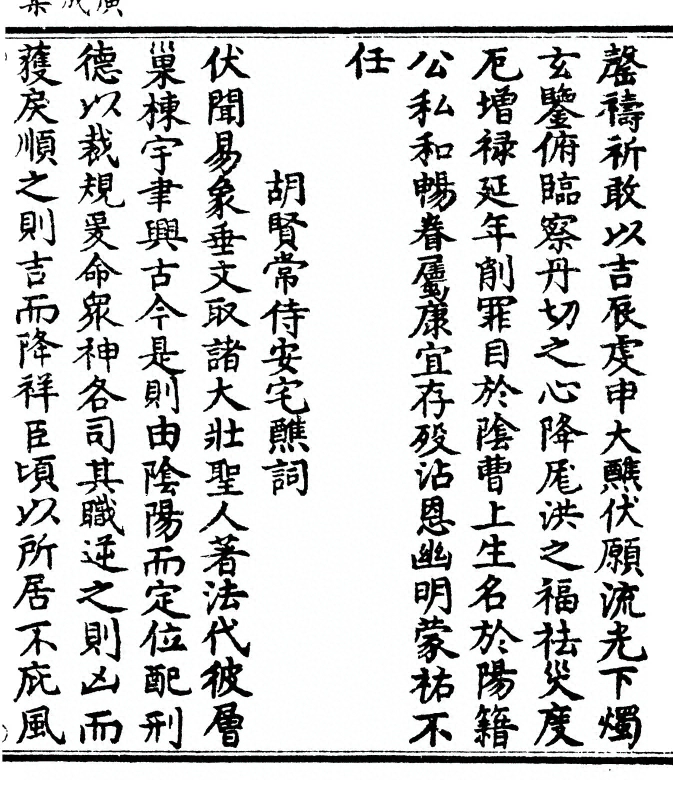 罄禱祈敢以吉辰虔申大醮伏願流光下燭
玄鑒俯臨察丹切之心降厖洪之福祛災度
厄增祿延年削罪目於陰曹上生名於陽籍
公私和暢眷屬康宜存歿沾恩幽明蒙祐不
任
胡賢常侍安宅醮詞
伏聞易象垂文取諸大壯聖人著法代彼層
巢棟宇聿興古今是則由陰陽而定位配刑
德以裁規爰命眾神各司其職逆之則凶而
獲戾順之則吉而降祥臣頃以所居不庇風